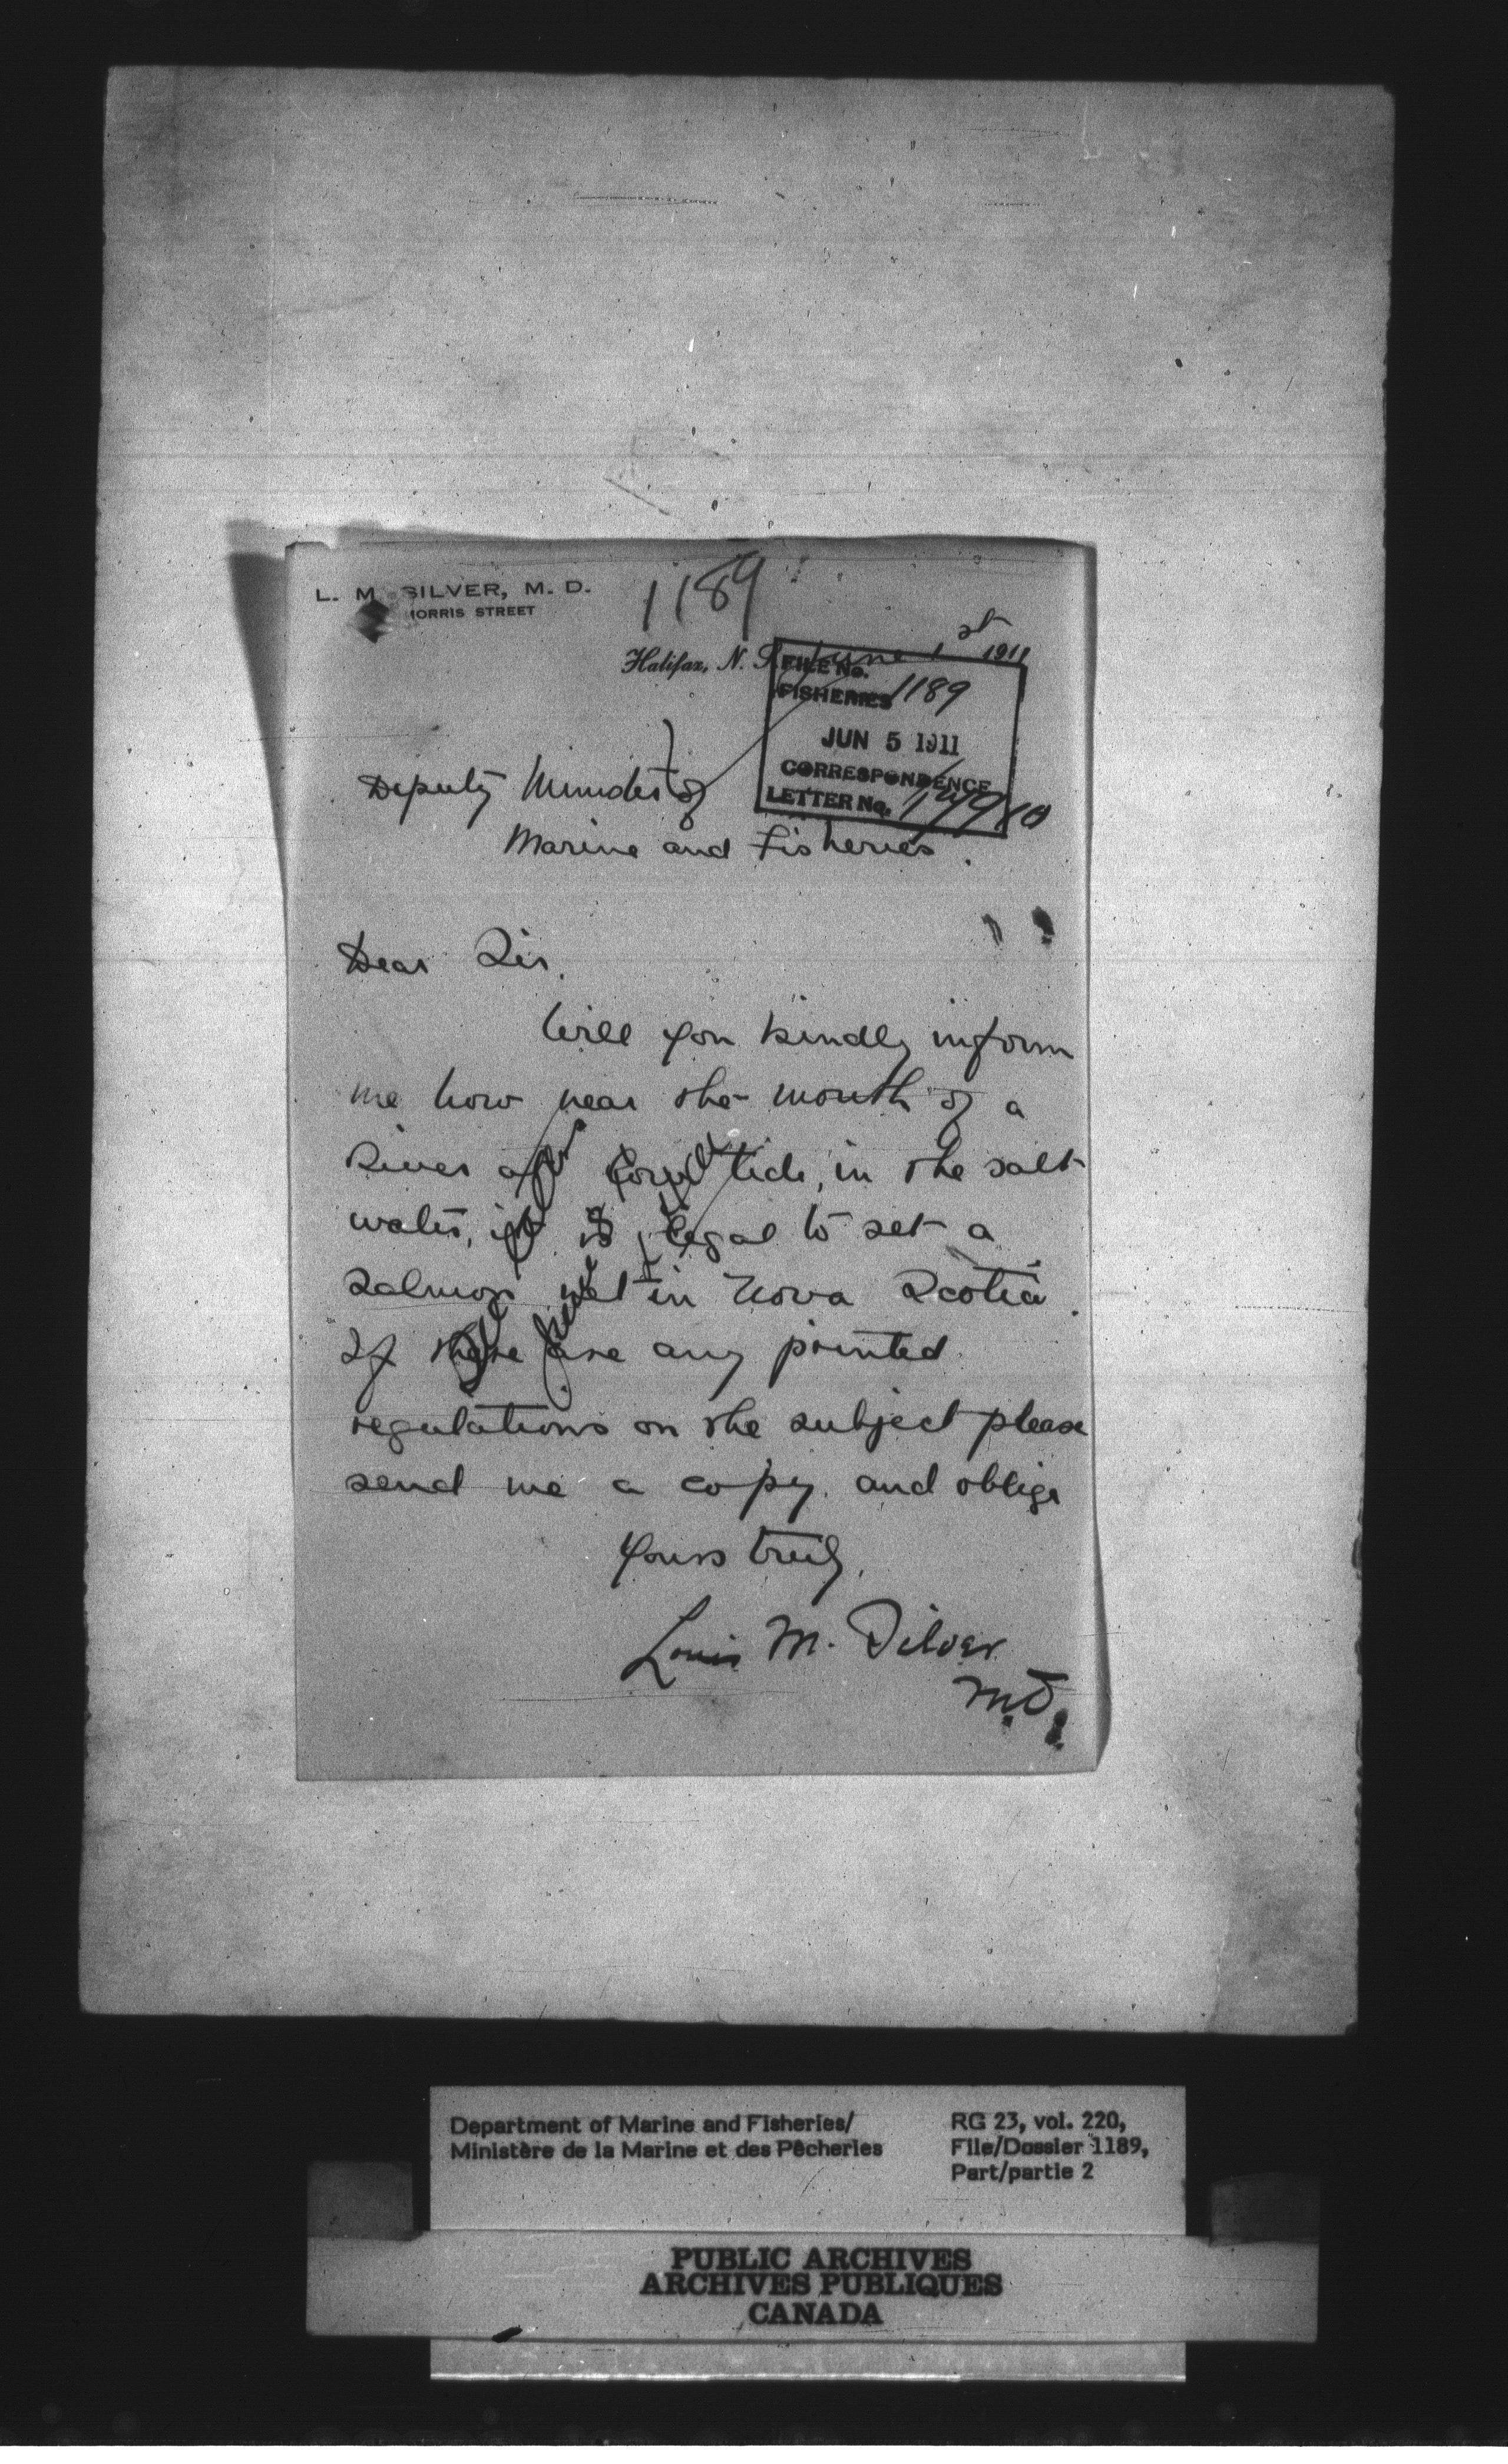 L. M. SILVER, M. D.
MORRIS STREET
1189
Halifax, N. S. June 1st 1911
FILE No.
FISHERIES 1189
JUN 5 1911
CORRESPONDENCE
LETTER No.
Deputy Minister of
Marine and Fisheries.
Dear Sir,
Will you kindly inform
me how near the mouth of a
River at low tide, in the salt
water, it is legal to set a
Salmon net in Nova Scotia.
If there are any printed
regulations on the subject please
send me a copy. and oblige
Yours truly,
Louis M. Silver
M.D.
Department of Marine and Fisheries/
Ministère de la Marine et des Pêcheries
RG 23, vol. 220,
File/Dossier 1189,
Part/partie 2
PUBLIC ARCHIVES
ARCHIVES PUBLIQUES
CANADA